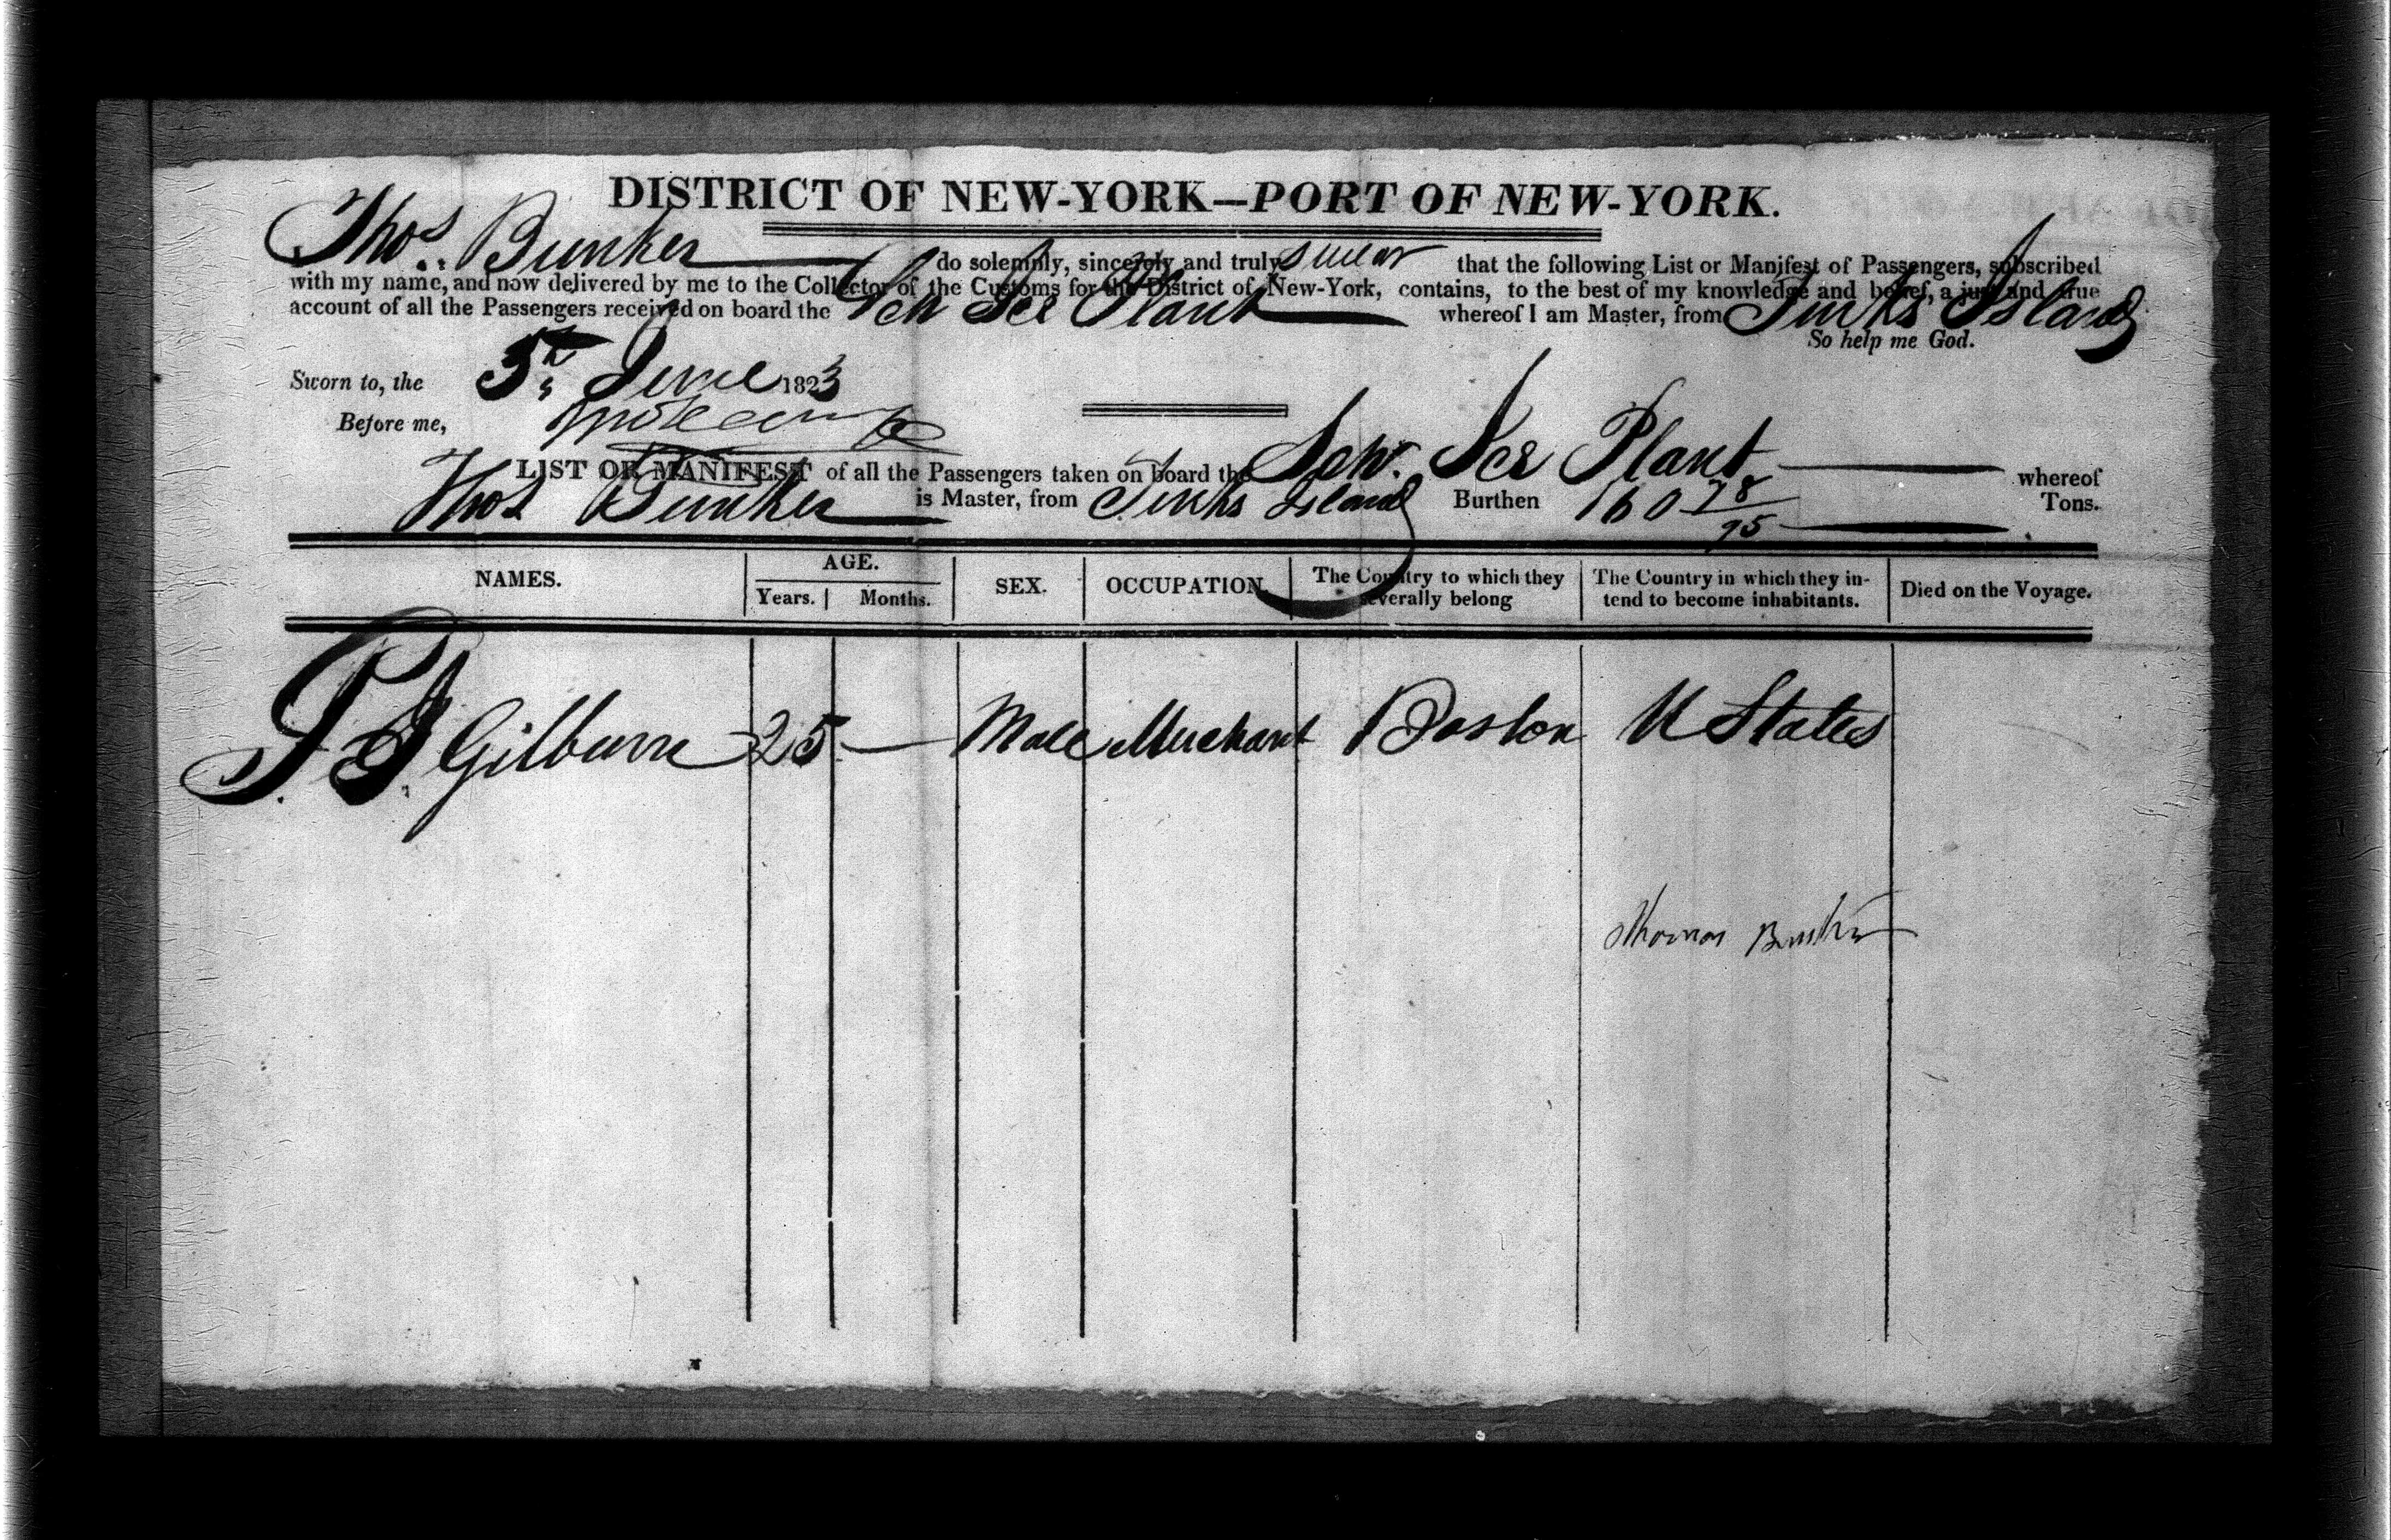 DISTRICT OF NEW-YORK—PORT OF NEW-YORK.
Thos. Bunker do solemnly, sincerely and truly swear that the following List or Manifest of Passengers, subscribed
with my name, and now delivered by me to the Collector of the Customs for the District of New-York, contains, to the best of my knowledge and belief, a just and true
account of all the Passengers received on board the Sch Ice Plant whereof I am Master, from Turks Island
So help me God.
Sworn to, the 5th June 1823
Before me,
LIST OR MANIFEST of all the Passengers taken on board the Schr. Ice Plant whereof
Thos Bunker is Master, from Turks Island Burthen 160 78/95 Tons.
NAMES. AGE. SEX. OCCUPATION. The Country to which they severally belong The Country in which they intend to become inhabitants. Died on the Voyage.
Years. Months.
Gilburn 25 — Male Merchant Boston U States
Thomas Bunker